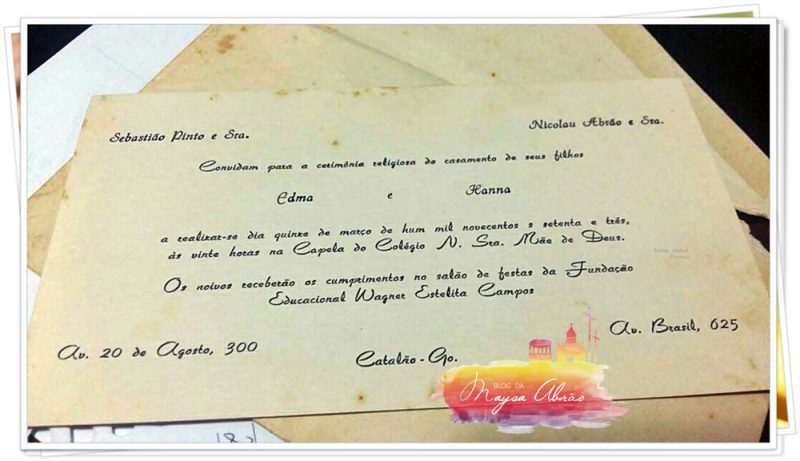 Sebastião Pinto e Sra.
Nicolau Abrão e Sra.
Convidam para a cerimônia religiosa do casamento de seus filhos
Edma e Hanna
a realizar-se dia quinze de março de hum mil novecentos s setenta e três,
ás vinte horas na Capela do Colégio N. Sra. Mãe de Deus.
Os noivos receberão os cumprimentos no salão de festas da Fundação
Educacional Wagner Estelita Campos
Av. 20 de Agosto, 300
Av. Brasil, 625
Catalão - Go.
BLOG DA
Maysa Abrão